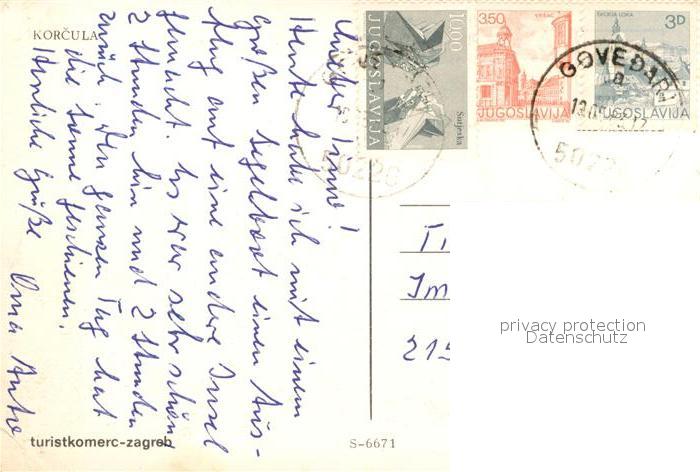 KORČULA
Heute habe ich mit einem
großen Segelboot einen Aus-
flug auf eine andere Insel
gemacht. Es war sehr schön
2 Stunden hin und 2 Stunden
zurück. Den ganzen Tag hat
die Sonne geschienen.
Herzliche Grüße
Oma
turistkomerc-zagreb
S-6671
10.00
JUGOSLAVIJA
Sutjeska
3.50
VRŠAC
JUGOSLAVIJA
ŠKOFJA LOKA
3D
JUGOSLAVIJA
GOVEĐARI
50226
Im
215
privacy protection
Datenschutz